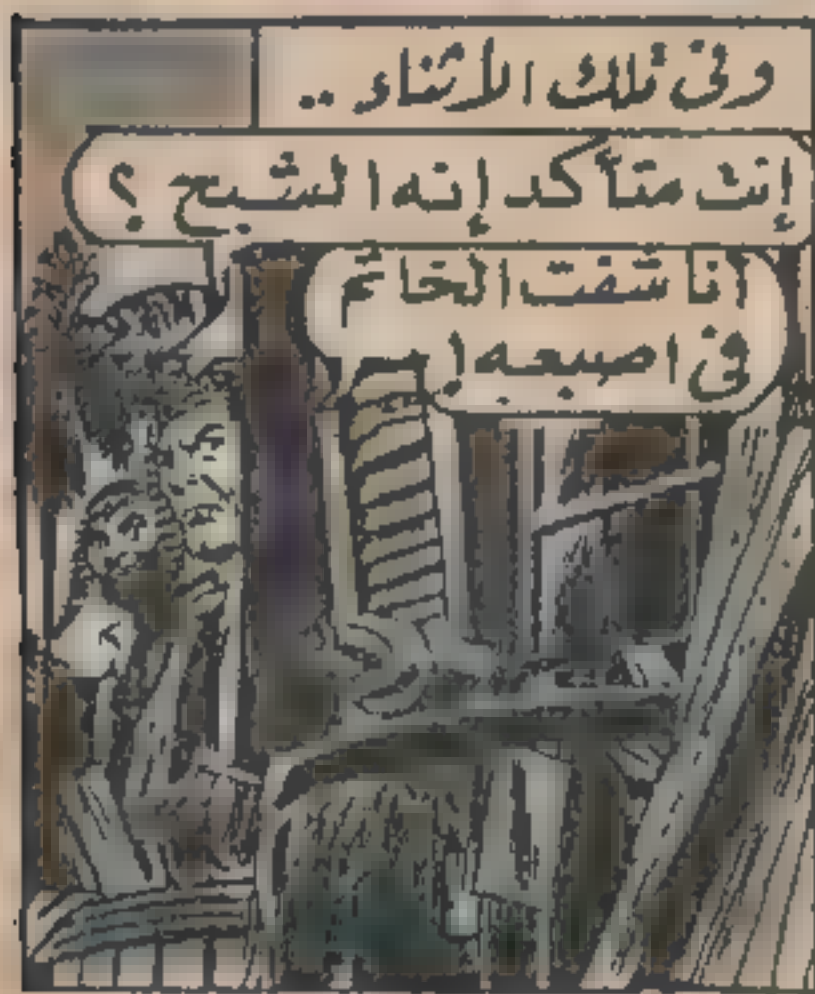 وفى تلك الأثناء ..
إنت متأكد إنه الشبح ؟
أنا شفت الخاتم
فى اصبعه !